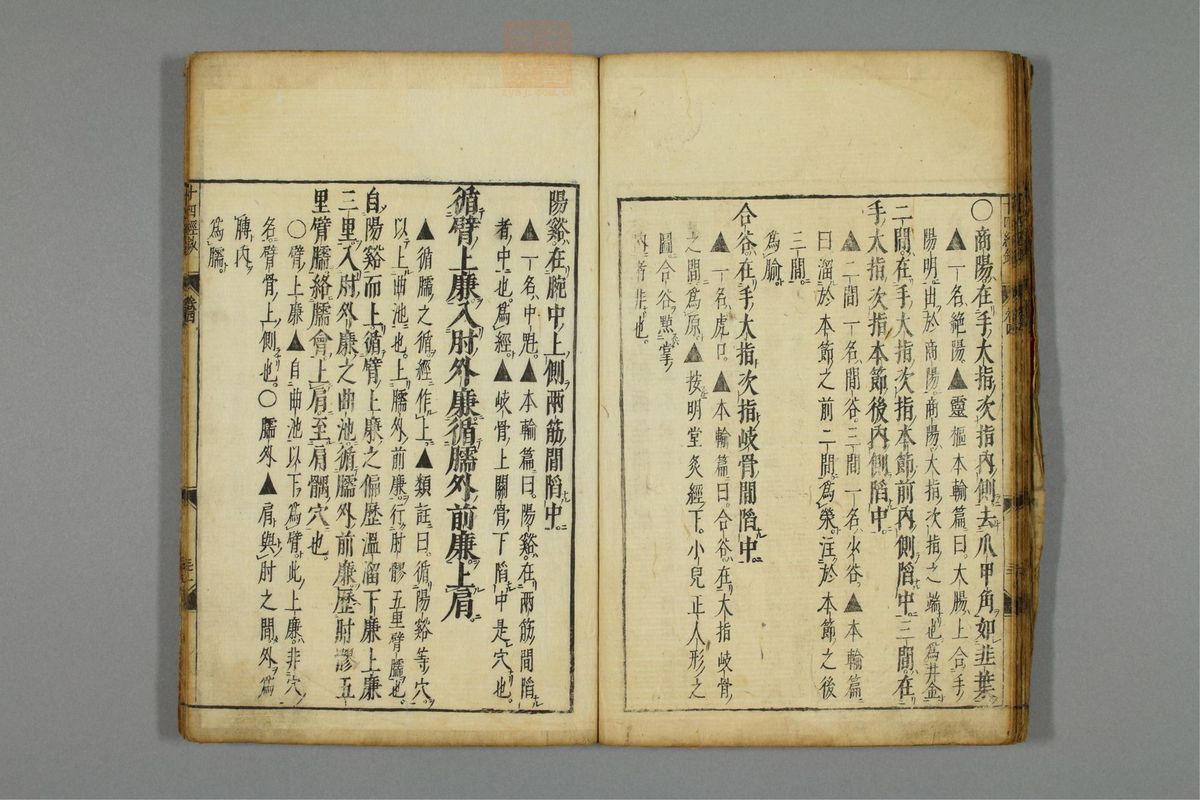 〇商陽在手大指次指内側去爪甲角如韭葉
▲一名絶陽▲靈樞本輸篇曰大腸上合手
陽明出於商陽商陽大指次指之端也爲井金
二間在手大指次指本節前内側陷中三間在
手大指次指本節後内側陷中
▲二間一名間谷三間一名少谷▲本輸篇
曰溜於本節之前二間爲滎注於本節之後
三間爲腧
合谷在手大指次指岐骨間陷中
▲一名虎口▲本輸篇曰合谷在大指岐骨
之間爲原▲按明堂灸經下小兒正人形之
圖合谷㸃掌
内者非也
陽谿在腕中上側兩筋間陷中
▲一名中魁▲本輸篇曰陽谿在兩筋間陷
者中也爲經▲岐骨上關骨下陷中是穴也
循臂上廉入肘外廉循臑外前廉上肩
▲循臑之循經作上▲類註曰循陽谿等穴
以上曲池也上臑外前廉行肘髎五里臂臑也
自陽谿而上循臂上廉之偏歷溫溜下廉上廉
三里入肘外廉之曲池循臑外前廉歷肘髎五
里臂臑絡臑會上肩至肩髃穴也
〇臂上廉▲自曲池以下爲臂此上廉非穴
名臂骨上側也〇臑外▲肩與肘之間外爲
膊内
爲臑
十四經
卷四